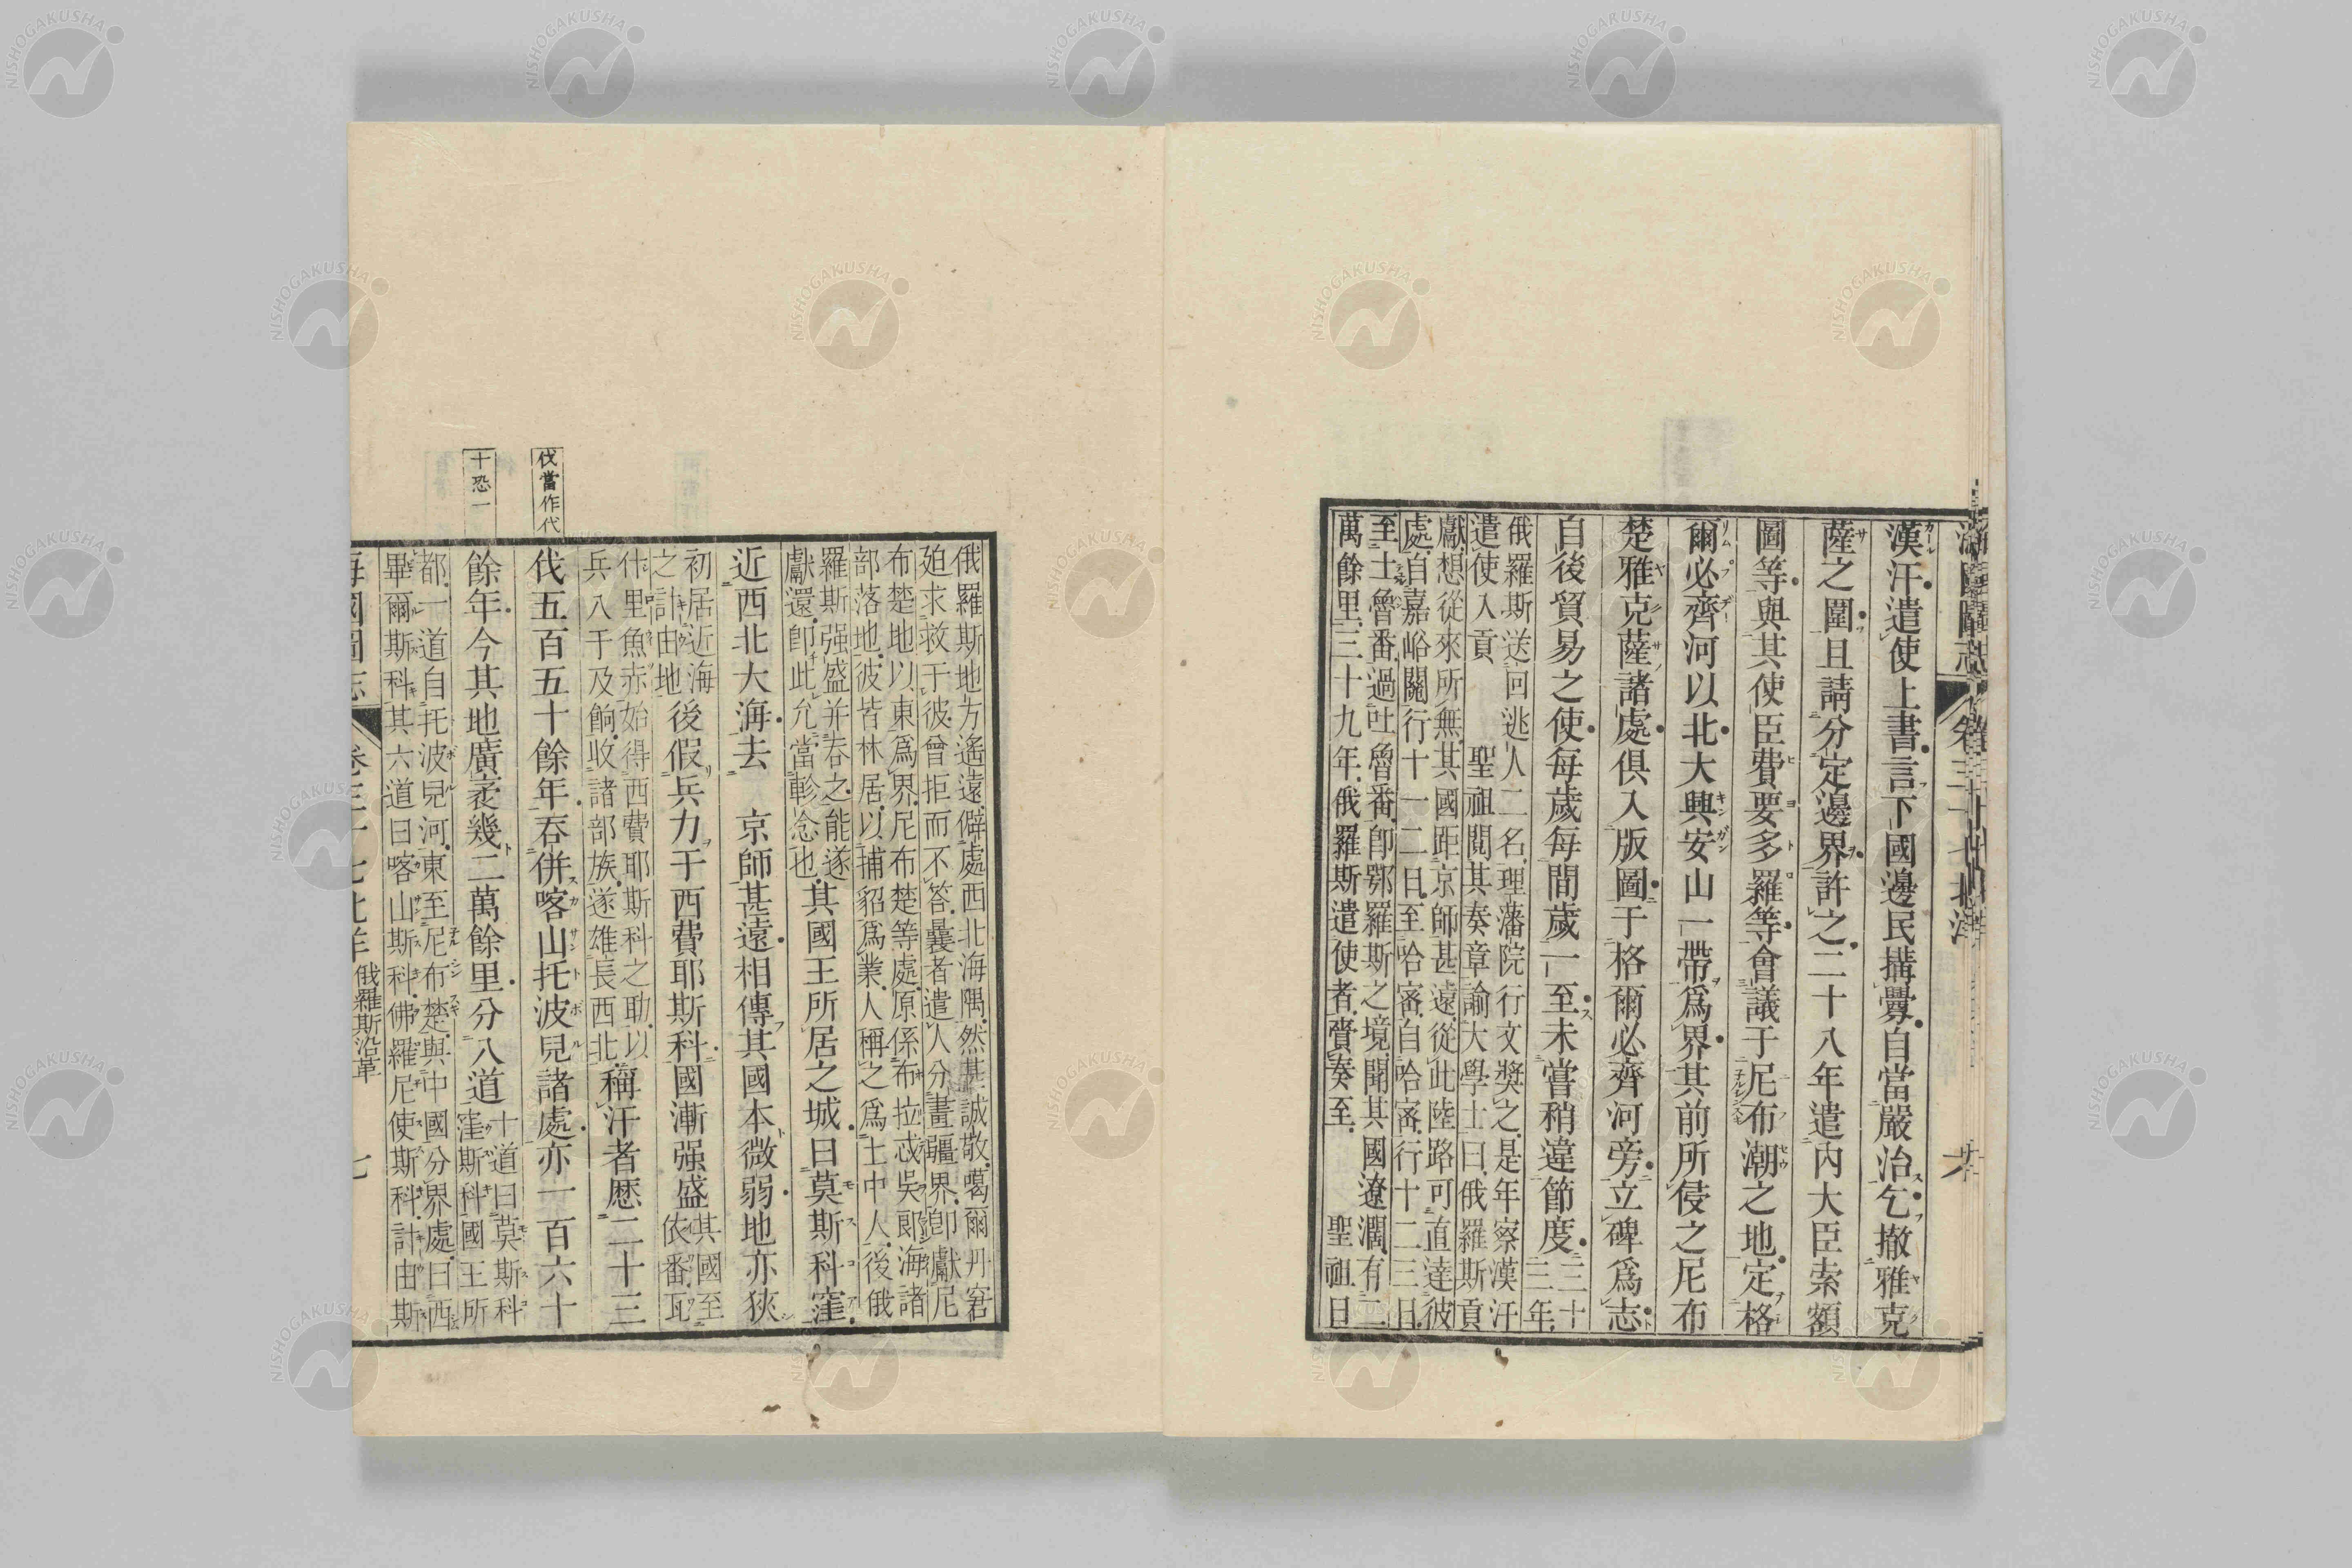 漢汗遣使上書言下國邊民搆釁自當嚴治乞撤雅克
薩之圍且請分定邊界許之二十八年遣內大臣索額
圖等與其使臣費要多羅等會議于尼布潮之地定格
爾必齊河以北大興安山一帶爲界其前所侵之尼布
楚雅克薩諸處俱入版圖于格爾必齊河旁立碑爲志
自後貿易之使每歲每間歲一至未嘗稍違節度三十
三年
俄羅斯送回逃人二名理藩院行文奬之是年察漢汗
遣使入貢 聖祖閱其奏章諭大學士曰俄羅斯貢
獻想從來所無其國距京師甚遠從此陸路可直達彼
處自嘉峪關行十一二日至哈密自哈密行十二三日
至土魯番過吐魯番卽鄂羅斯之境聞其國遼濶有二
萬餘里三十九年俄羅斯遣使者賫奏至 聖祖曰
俄羅斯地方遙遠僻處西北海隅然甚誠敬噶爾丹窘
廹求救于彼曾拒而不答曩者遣人分畫疆界卽獻尼
布楚地以東爲界尼布楚等處原係布拉忒吳郎海諸
部落地彼皆林居以捕貂爲業人稱之爲土中人後俄
羅斯强盛并吞之能遂
獻還卽此允當軫念也
其國王所居之城曰莫斯科窪
近西北大海去 京師甚遠相傳其國本微弱地亦狹
初居近海
之計由地
後假兵力于西費耶斯科國漸强盛
其國至
依番瓦
什里魚赤始得西費耶斯科之助以
兵八千及餉收諸部族遂雄長西北
稱汗者歷二十三
伐五百五十餘年吞併喀山托波兒諸處亦一百六十
餘年今其地廣袤幾二萬餘里分八道
十道曰莫斯科
窪斯科國王所
都一道自托波兒河東至尼布楚與中國分界處曰西
畢爾斯科其六道曰喀山斯科佛羅尼使斯科計由斯
海國圖志 卷三十七 北洋 俄羅斯沿革 七
伐當作代
十恐一